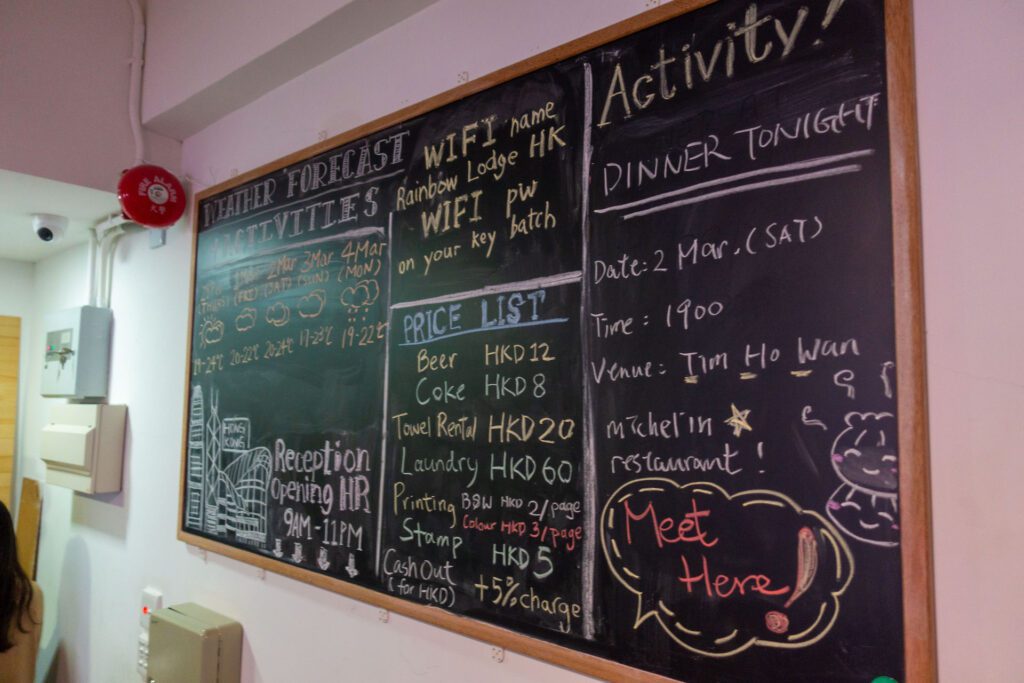 FIRE ALARM
火警
WEATHER FORECAST
ACTIVITIES
1Mar 2Mar 3Mar 4Mar
(THURS) (FRI) (SAT) (SUN) (MON)
19-24°C 20-22°C 20-24°C 17-23°C 19-22°C
HONG
KONG
Reception
Opening HR
9AM-11PM
WIFI name
Rainbow Lodge HK
WIFI pw
on your key batch
PRICE LIST
Beer HKD 12
Coke HKD 8
Towel Rental HKD 20
Laundry HKD 60
Printing B&W HKD 2/page
Colour HKD 3/page
Stamp HKD 5
Cash Out +5% charge
(for HKD)
Activity!
DINNER TONIGHT
Date: 2 Mar. (SAT)
Time: 1900
Venue: Tim Ho Wan
michelin
restaurant!
Meet
Here!